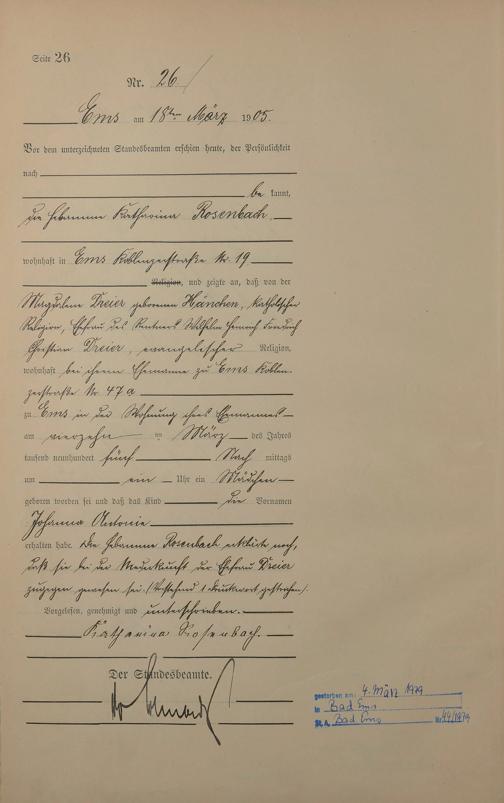 Seite 26
Nr. 26
Ems am 18ten März 1905.
Vor dem unterzeichneten Standesbeamten erschien heute, der Persönlichkeit
nach
be kannt,
die Hebamme Katharina Rosenbach
wohnhaft in Ems Koblenzerstraße Nr. 19
Religion, und zeigte an, daß von der
Magdalena Dreier geborenen Hänchen, katholischer
Religion, Ehefrau des Rentners Wilhelm Heinrich Friedrich
Christian Dreier, evangelischer Religion,
wohnhaft bei ihrem Ehemanne zu Ems Koblen-
zerstraße Nr 47a
zu Ems in der Wohnung ihres Ehemannes
am vierzehn ten März des Jahres
tausend neunhundert fünf Nach mittags
um ein Uhr ein Mädchen
geboren worden sei und daß das Kind die Vornamen
Johanna Antonie
erhalten habe. Die Hebamme Rosenbach erklärte noch,
daß sie bei der Niederkunft der Ehefrau Dreier
zugegen gewesen sei. (Vorstehend 1 Druckwort gestrichen).
Vorgelesen, genehmigt und unterschrieben.
Katharina Rosenbach.
Der Standesbeamte.
gestorben am: 4. März 1979
in Bad Ems
St. A. Bad Ems Nr. 44/1979